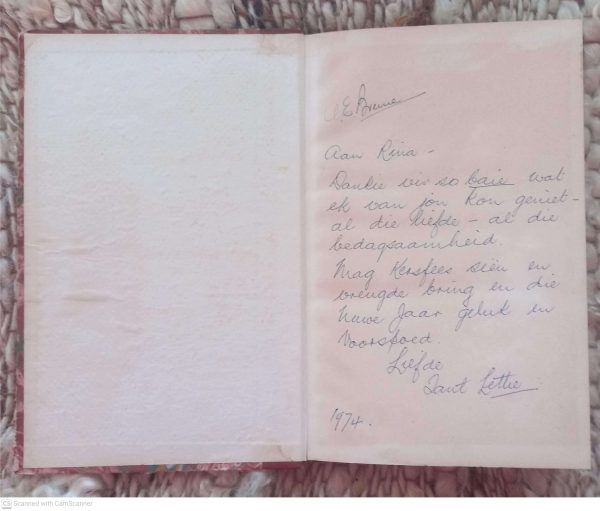 E Brune
Aan Rina -
Dankie vir so baie wat
ek van jou kon geniet -
al die liefde - al die
bedagsaamheid.
Mag Kersfees seën en
vreugde bring en die
Nuwe Jaar geluk en
Voorspoed.
Liefde
Tant Lettie
1974.
CS Scanned with CamScanner